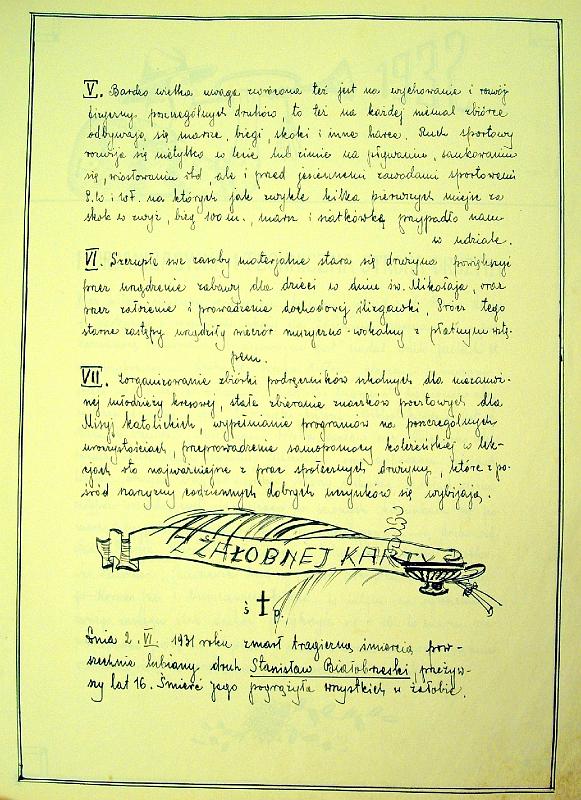 V. Bardzo wielka uwaga zwrócona też jest na wychowanie i rozwój
fizyczny poszczególnych druhów, to też na każdej niemal zbiórce
odbywają się marsze, biegi, skoki i inne harce. Ruch sportowy
rozwija się nietylko w lecie lub zimie na pływaniu, saneczkowaniu
się, wiosłowaniu itd, ale i przed jesiennemi zawodami sportowemi
P.W i W.F. na których jak zwykle kilka pierwszych miejsc za
skok w zwyż, bieg 100 m., marsz i siatkówkę przypadło nam
w udziale.
VI. Szczupłe swe zasoby materjalne stara się drużyna powiększyć
przez urządzenie zabawy dla dzieci w dniu św. Mikołaja, oraz
przez założenie i prowadzenie dochodowej ślizgawki, Prócz tego
starsze zastępy urządziły wieczór muzyczno-wokalny z płatnym wstę-
pem.
VII. Zorganizowanie zbiórki podręczników szkolnych dla niezamoż-
nej młodzieży kresowej, stałe zbieranie znaczków pocztowych dla
Misyj katolickich, wypełnianie programów na poszczególnych
uroczystościach, przeprowadzenie samopomocy koleżeńskiej w lek-
cjach oto najważniejsze z prac społecznych drużyny, które z po-
śród naszych codziennych dobrych uczynków się wybijają.
Z ŻAŁOBNEJ KARTY
ś † p.
Dnia 2. VI. 1931 roku zmarł tragiczną śmiercią pow-
szechnie lubiany druh Stanisław Białobrzeski, przeżyw-
szy lat 16. Śmierć jego pogrążyła wszystkich w żałobie.